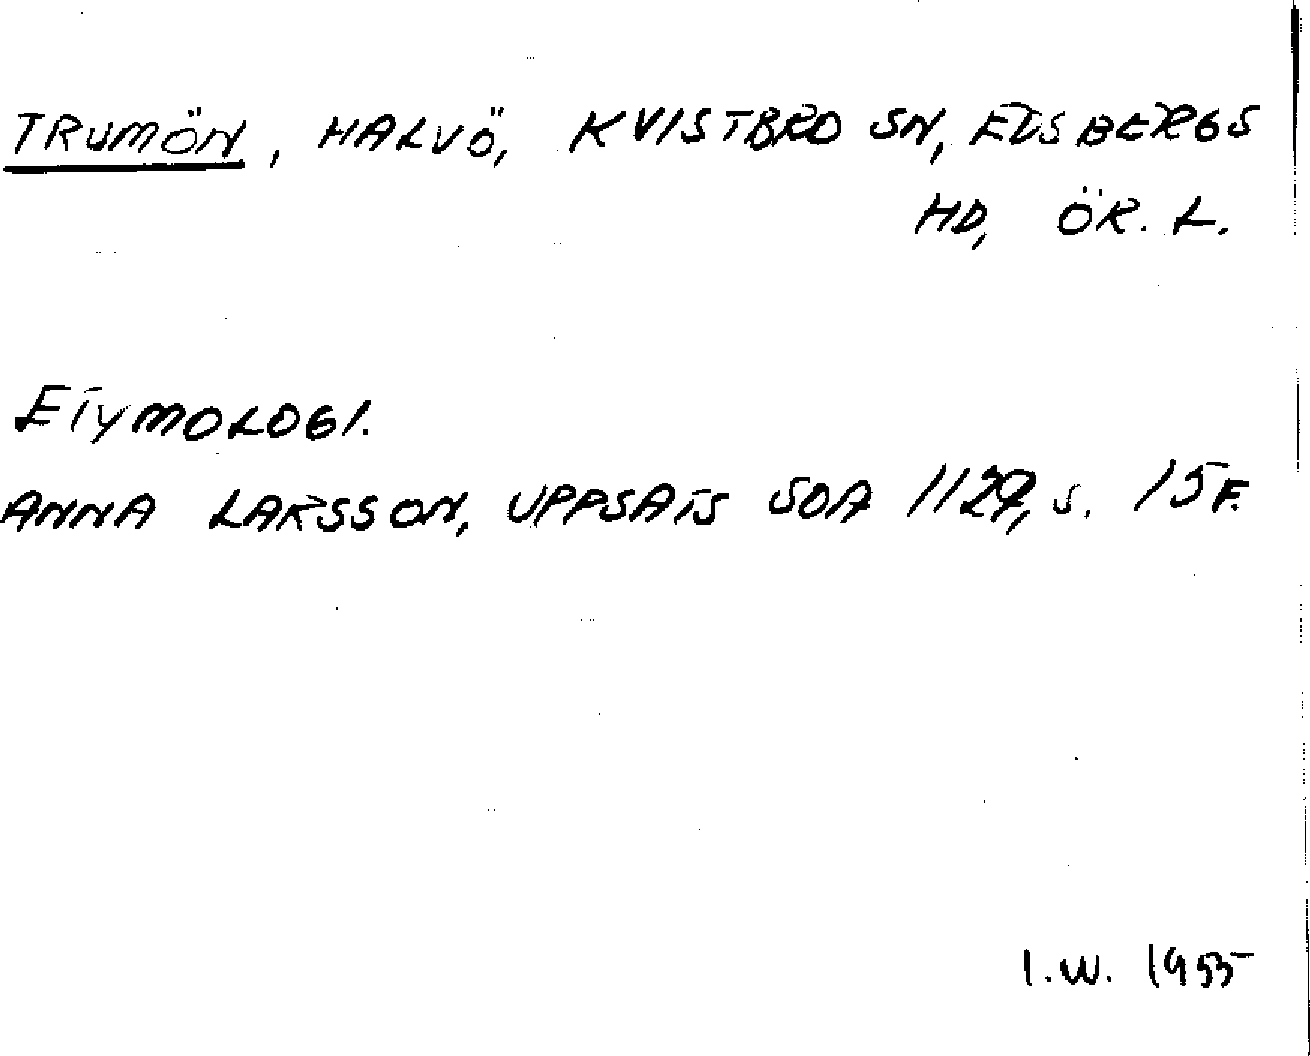 TRUMÖN, HALVÖ, KVISTBRO SN, EDSBERGS
HD, ÖR. L.
ETYMOLOGI.
ANNA LARSSON, UPPSATS SOA 1129, S. 15 F.
I.W. 1955